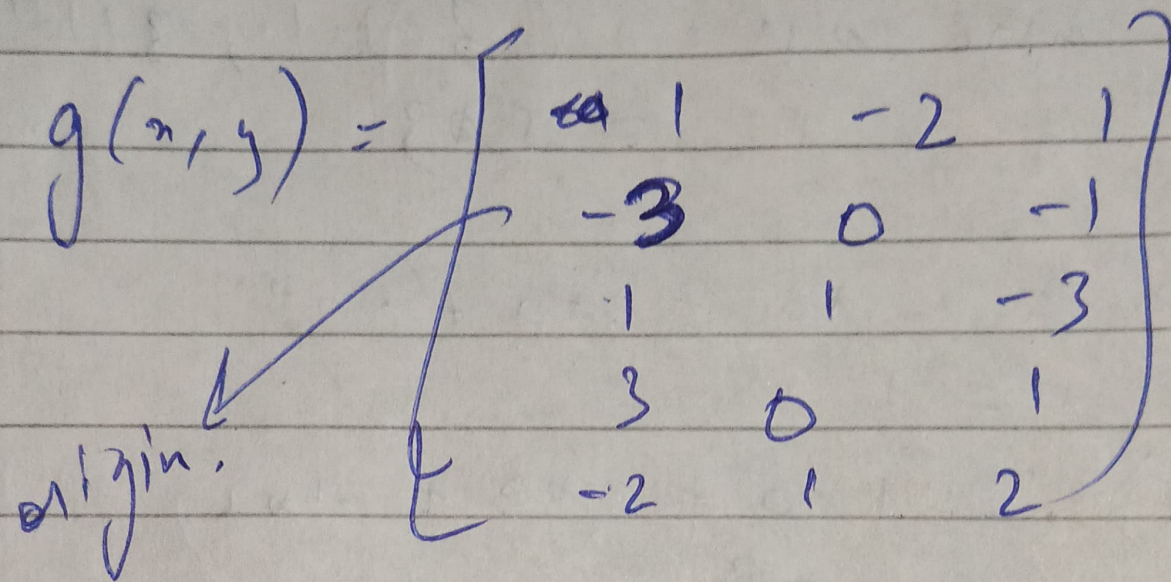 g(x, y) = [ 1 -2 1
-3 0 -1
1 1 -3
3 0 1
-2 1 2 ]
origin.